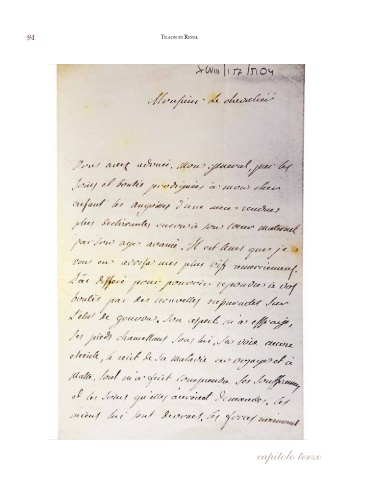 94
Thaon di Revel
XVIII/157/5104
Monsieur Le chevalier
Vous avez adouci, mon general, par les
soins et bontés prodiguées à mon cher
enfant les angoisses d'une mere rendues
plus dechirantes encore à son cœur maternel
par son age avancé. Il est tems que je
vous en adresse mes plus vifs remerciemens.
J'ai differé pour pouvoir repondre à vos
bontés par des nouvelles sur
l'etat de . Son aspect m'a effrayée,
ses pieds chancellans sous lui, sa voix encore
eteinte, le recit de sa maladie en voyage et à
Malte, tout m'a fait comprendre ses souffrances
et les soins qu'elles avoient demandés. Les
miens lui sont devoués, les forces reviennent
capitolo terzo